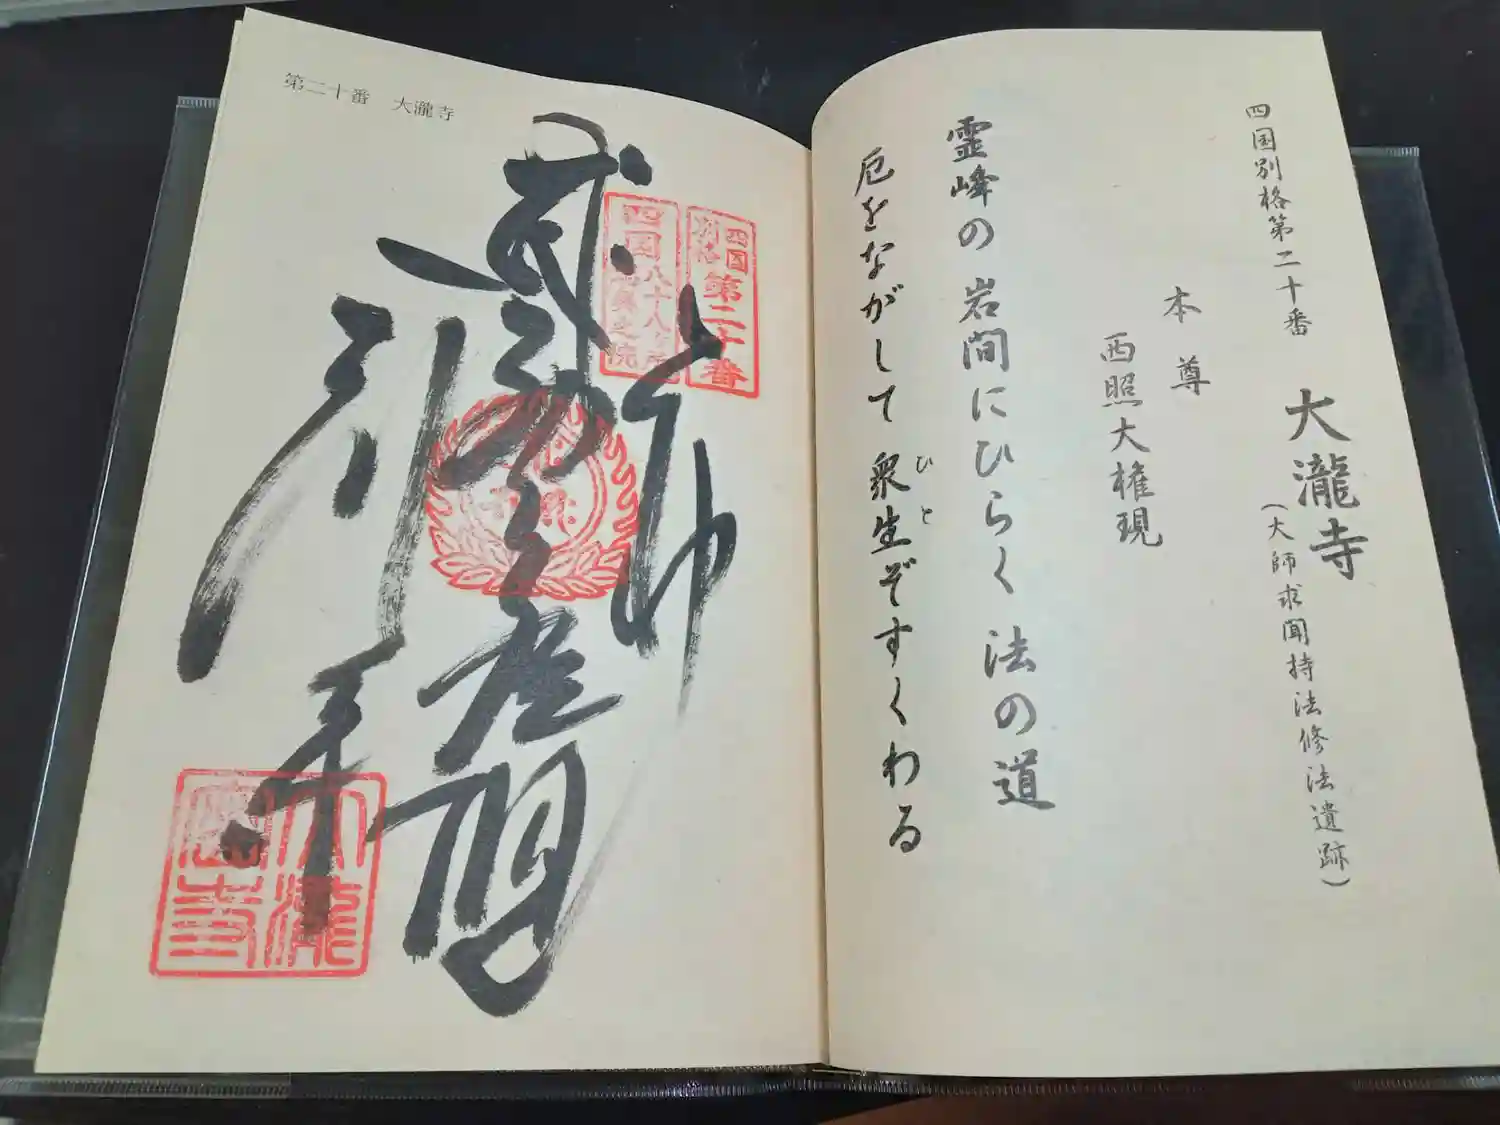 四国別格第二十番 大瀧寺
(大師求聞持法修法遺跡)
本尊
西照大権現
霊峰の岩間にひらく法の道
厄をながして衆生ぞすくわる
ひと
第二十番 大瀧寺
四国
別格
第二十番
四国八十八ヶ所
総奥之院
奉
大瀧寺